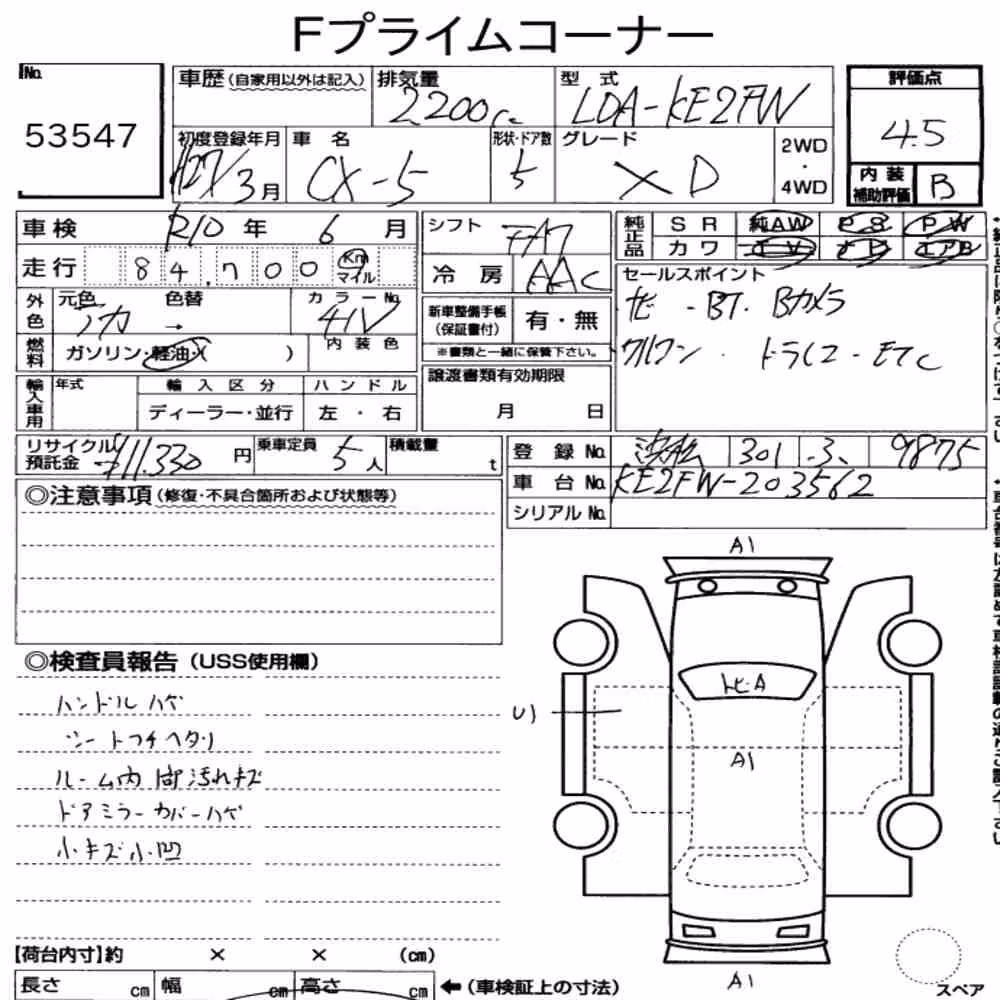 Fプライムコーナー
No. 53547
車歴(自家用以外は記入) 排気量 2200cc 型式 LDA-KE2FW 評価点 4.5
初度登録年月 H27/3月 車名 CX-5 形状・ドア数 5 グレード XD 2WD・4WD 内装補助評価 B
車検 R10年 6月 シフト FA7 純正品 SR 純AW PS PW
走行 84,700 Km マイル 冷房 AAC カワ TV ナビ エアB
外色 元色 アカ 色替 → カラーNo. 41V 内装色
新車整備手帳(保証書付) 有・無
※書類と一緒に保管下さい。
セールスポイント
ナビ - BT. Bカメラ
クルコン - ドラレコ - ETC
燃料 ガソリン・軽油・( )
譲渡書類有効期限 月 日
輸入車用 年式 輸入区分 ハンドル
ディーラー・並行 左・右
リサイクル預託金 ¥11,330円 乗車定員 5人 積載量 t
登録No. 浜松 301 9875
車台No. KE2FW-203562
シリアルNo.
◎注意事項(修復・不具合箇所および状態等)
◎検査員報告(USS使用欄)
ハンドルハゲ
シートフチヘタリ
ルーム内 汚れキズ
ドアミラーカバーハゲ
小キズ小凹
A1
トヒ-A
U1
A1
A1
スペア
【荷台内寸】約 × × (cm)
長さ cm 幅 cm 高さ cm ←(車検証上の寸法)